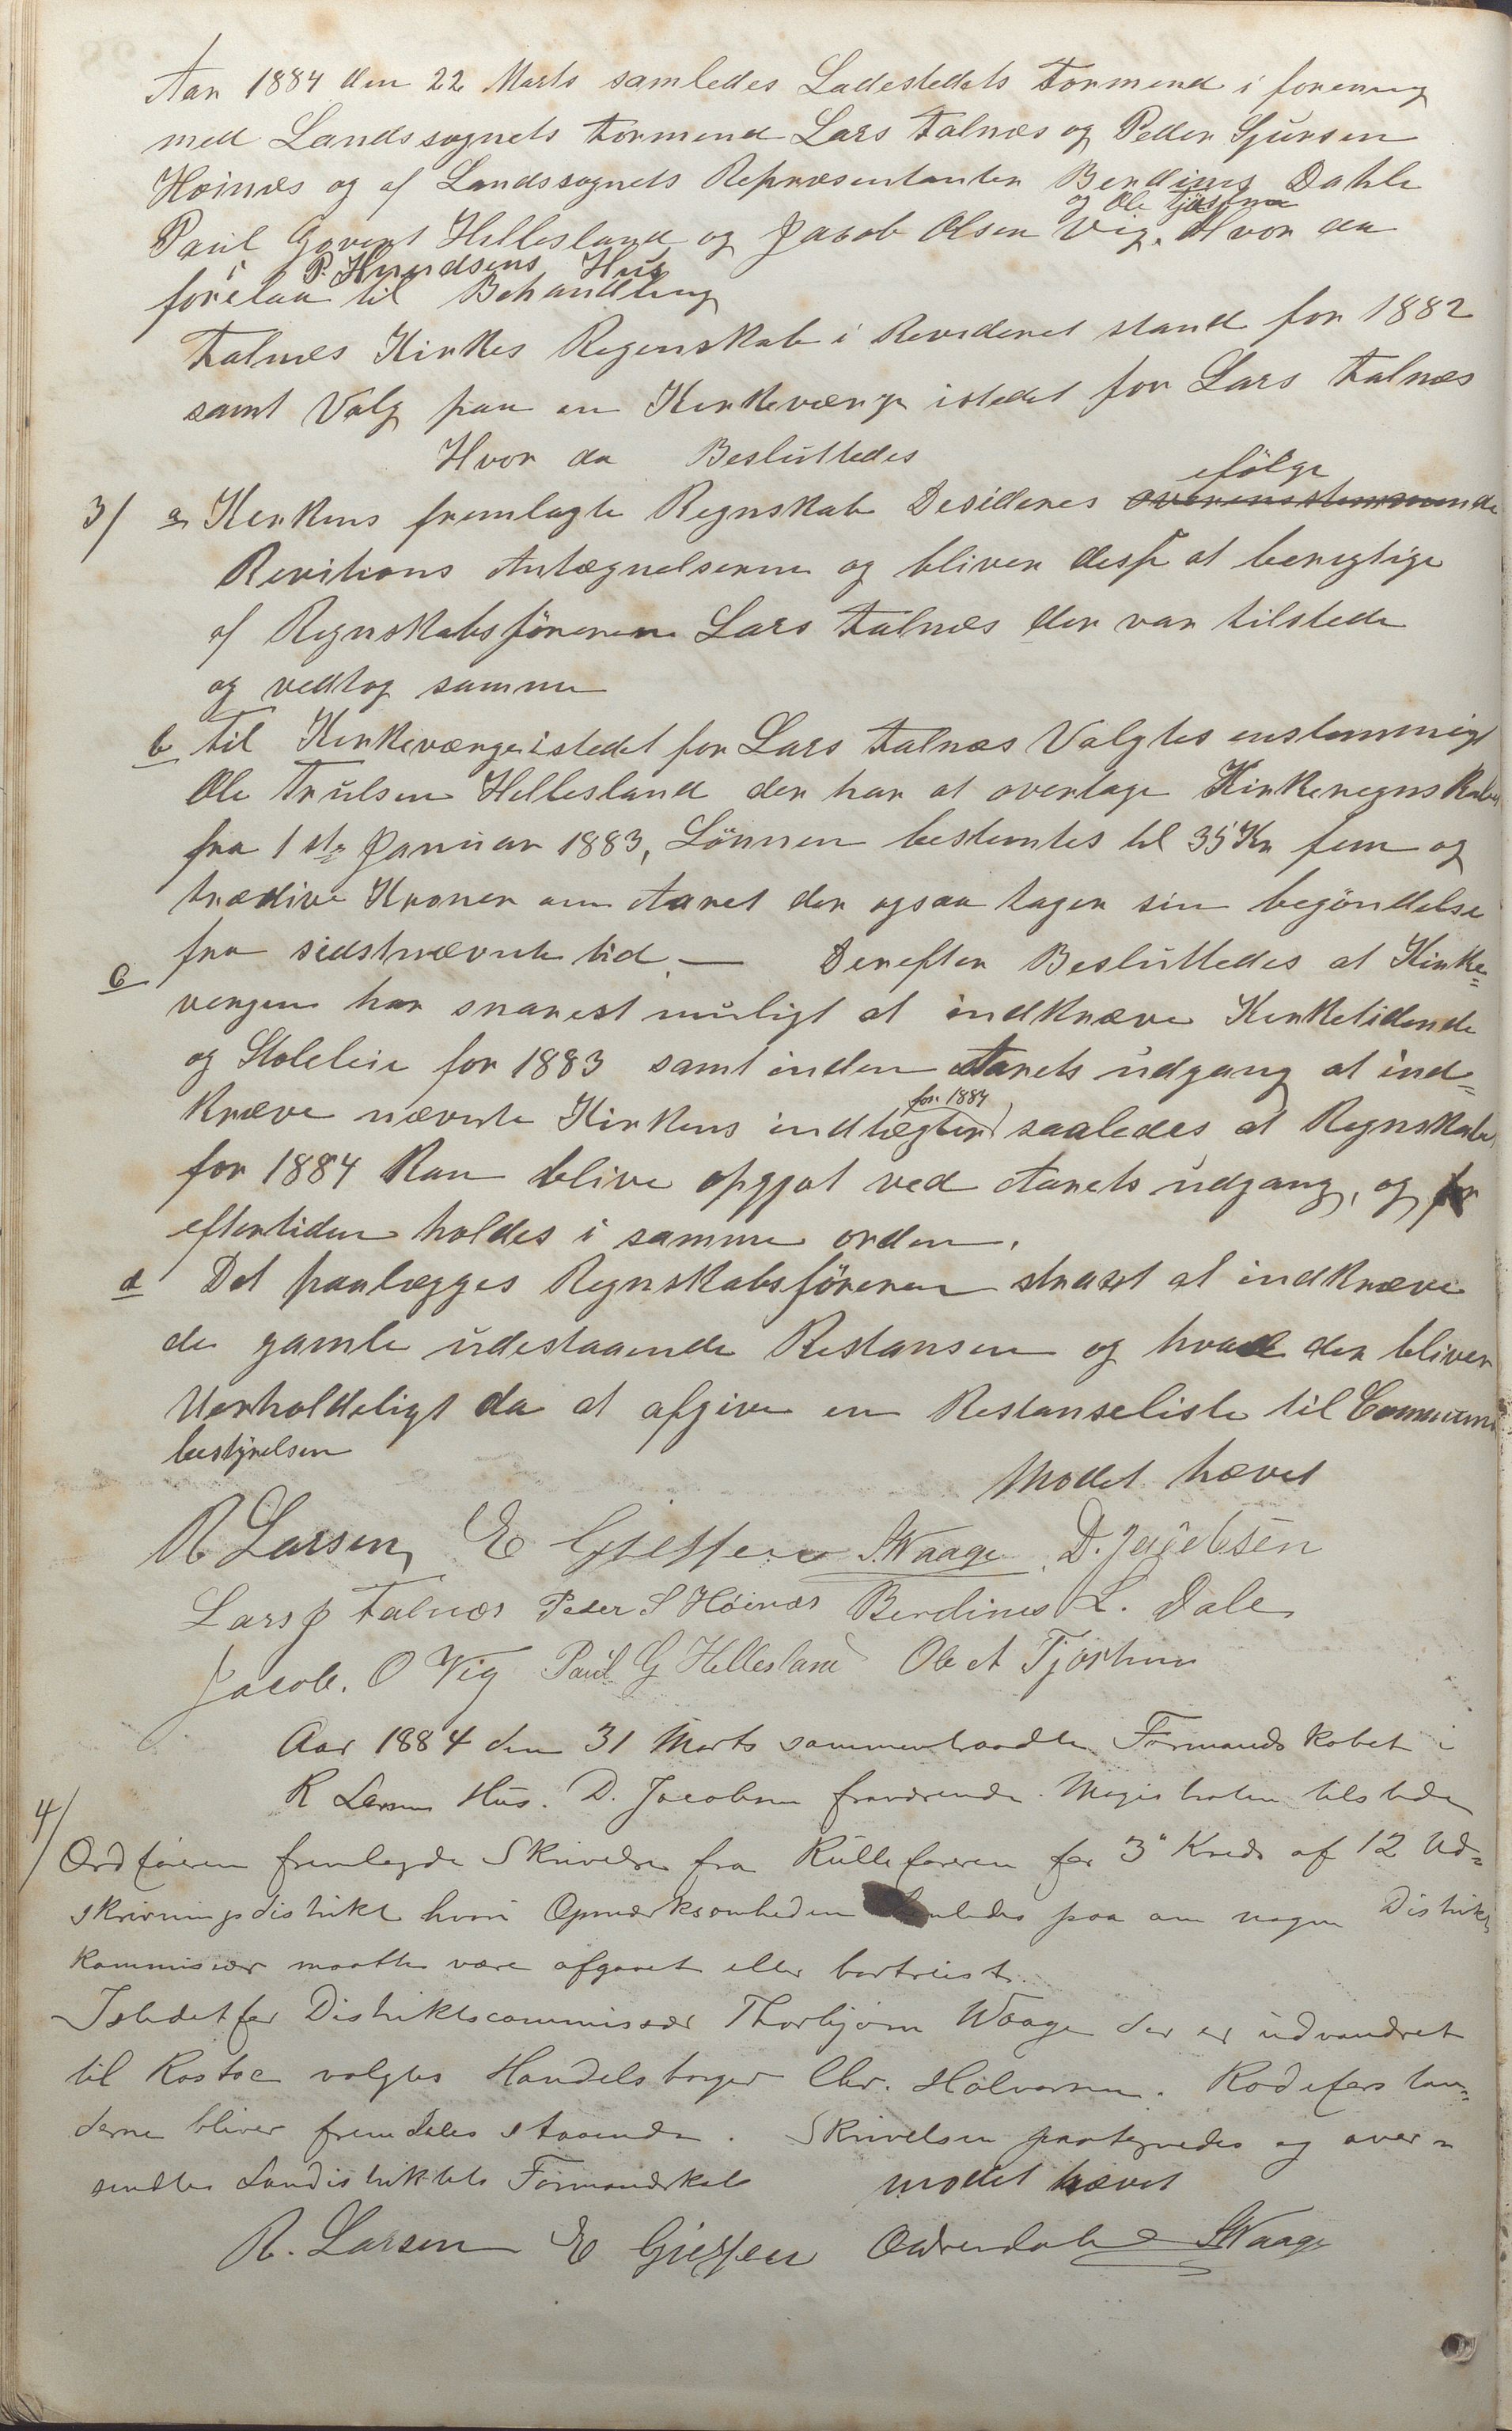 Aar 1884 den 22 Marts samledes Ladestedets Formend i forening
med Landssognets Formend Lars Falnæs og Peder Sjursen
Høinæs og af Landssognets Repræsentanter Berdines Dahle
og Ole Tjøstem
Paul Govert Hellesland og Jacob Olsen Vig. Hvor da
i P. Knudsens Hus
forelaa til Behandling
Falnæs Kirkes Regenskab i Revideret stand for 1882
samt Valg paa en Kirkeværge istedet for Lars Falnæs
Hvor da Besluttedes
efölge
3/ a Kirkens fremlagte Regnskab Desideres overensstemmende
Revitions Antægnelserne og bliver disse at berigtige
af Regnskabsföreren Lars Falnæs der var tilstede
og vedtog samme
b Til Kirkeværge istedet for Lars Falnæs Valgtes enstemmigt
Ole Trulsen Hellesland der har at overtage Kirkeregnskabet
fra 1ste Januar 1883, Lönnen bestemtes til 35 Kr fem og
trædive Kroner om Aaret der ogsaa tager sin begöndelse
fra sidstnævnte tid. — Derefter Besluttedes at Kirke=
c
vergen har snarest muligt at indkræve Kirketidende
og Stoleleie for 1883 samt inden Aarets udgang at ind=
for 1884
kræve nævnte Kirkens indtægter saaledes at Regnskabet
for 1884 kan blive opgjot ved Aarets udgang, og for
eftertiden holdes i samme orden.
d Det paalægges Regnskabsföreren straxt at indkræve
de gamle udestaaende Restanser og hvad der bliver
Uerholdeligt da at afgive en Restanseliste til Commune
bestyrelsen
Mødet hævet
R Larsen E Gjessen S. Waage D. Jacobsen
Lars J Falnæs Peder S Höinæs Berdines L. Dale
Jacob. O Vig Paul G Hellesland Ole A Tjøsthem
Aar 1884 den 31 Marts sammentraadte Formandskabet i
R Larsens Hus. D. Jacobsen fraværende. Magistraten tilstede
4/
Ordføreren fremlagde Skrivelse fra Rulleføreren for 3die Kreds af 12 Ud=
skrivningsdistrikt hvori Opmærksomheden henledes paa om nogen Distrikts
kommissær maatte være afgaaet eller bortreist.
Istedetfor Distriktscommissær Thorbjørn Waage der er udvandret
til valgtes Handelsborger Chr. Halvorsen. Rodeforstan=
derne bliver fremdeles staaende. Skrivelsen paategnedes og over=
sendtes Landistriktets Formandskab mødet hævet
R. Larsen E Gjessen S Waage